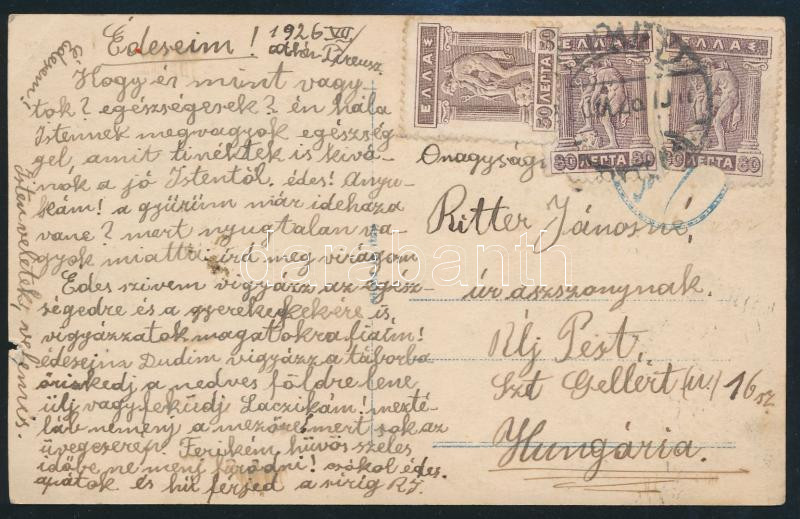 Édeseim! 1926 VII/
Athén Pireusz.
Hogy és mint vagy-
tok? egészségerek? én hála
Istennek megvagyok egészség-
gel, amit tinéktek is kivá-
nok a jó Istentől. édes! Anyu-
kám! a gyürüm már idehaza
vane? mert nyugtalan va-
gyok miattu irá meg virágom
Édes szivem vigyázz az egész-
ségedre és a gyerekekre is
vigyázzatok magatokra fiaim!
édeseim Dudim vigyázz a táborba
a nedves földre lene
ülj vagy feküdj Laczikám! mezté-
láb nemenj a mezőre mert sok az
üvegcserep. Ferikém hüvös szeles
időbe ne menj fürödni! csókol édes-
apátok és hü férjed a sirig RJ.
Édesem!
Isten veletek, velemis.
ΕΛΛΑΣ
50 ΛΕΠΤΑ 50
ΕΛΛΑΣ
80 ΛΕΠΤΑ 80
ΕΛΛΑΣ
80 ΛΕΠΤΑ 80
Őnagysága
Ritter Jánosné,
úr aszszonynak.
Uj Pest.
Szt Gellért (u.) 16 sz.
Hungária.
darabanth